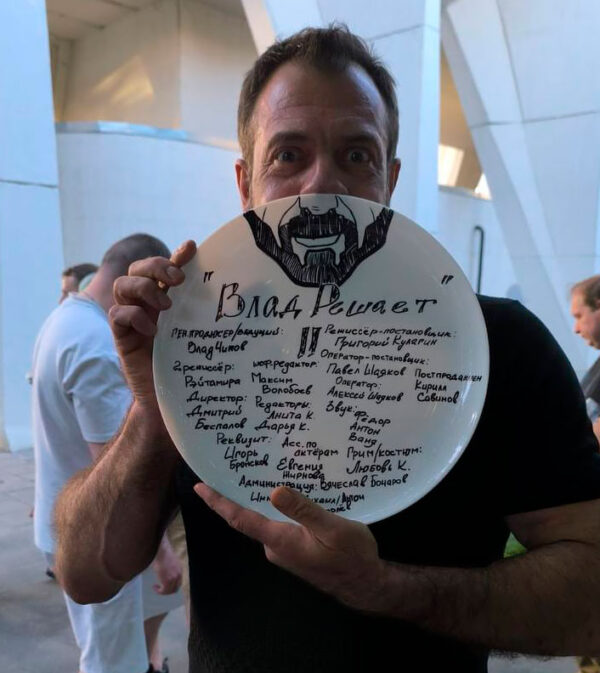 "Влад Решает"
II
Ген.продюсер/ведущий:
Влад Чижов
Режиссёр-постановщик:
Григорий Куларин
2 режиссёр:
Рэйтамира
шеф.редактор:
Максим
Волобоев
Оператор-постановщик:
Павел Шадков
Оператор:
Алексей Шадков
Постпродакшен
Кирилл
Савинов
Директор:
Дмитрий
Беспалов
Редакторы:
Анита К.
Дарья К.
Звук:
Фёдор
Антон
Ваня
Реквизит:
Игорь
Бронсков
Асс.по
актёрам
Евгения
Жирнова
Грим/костюм:
Любовь К.
Администрация: Вячеслав Бочаров